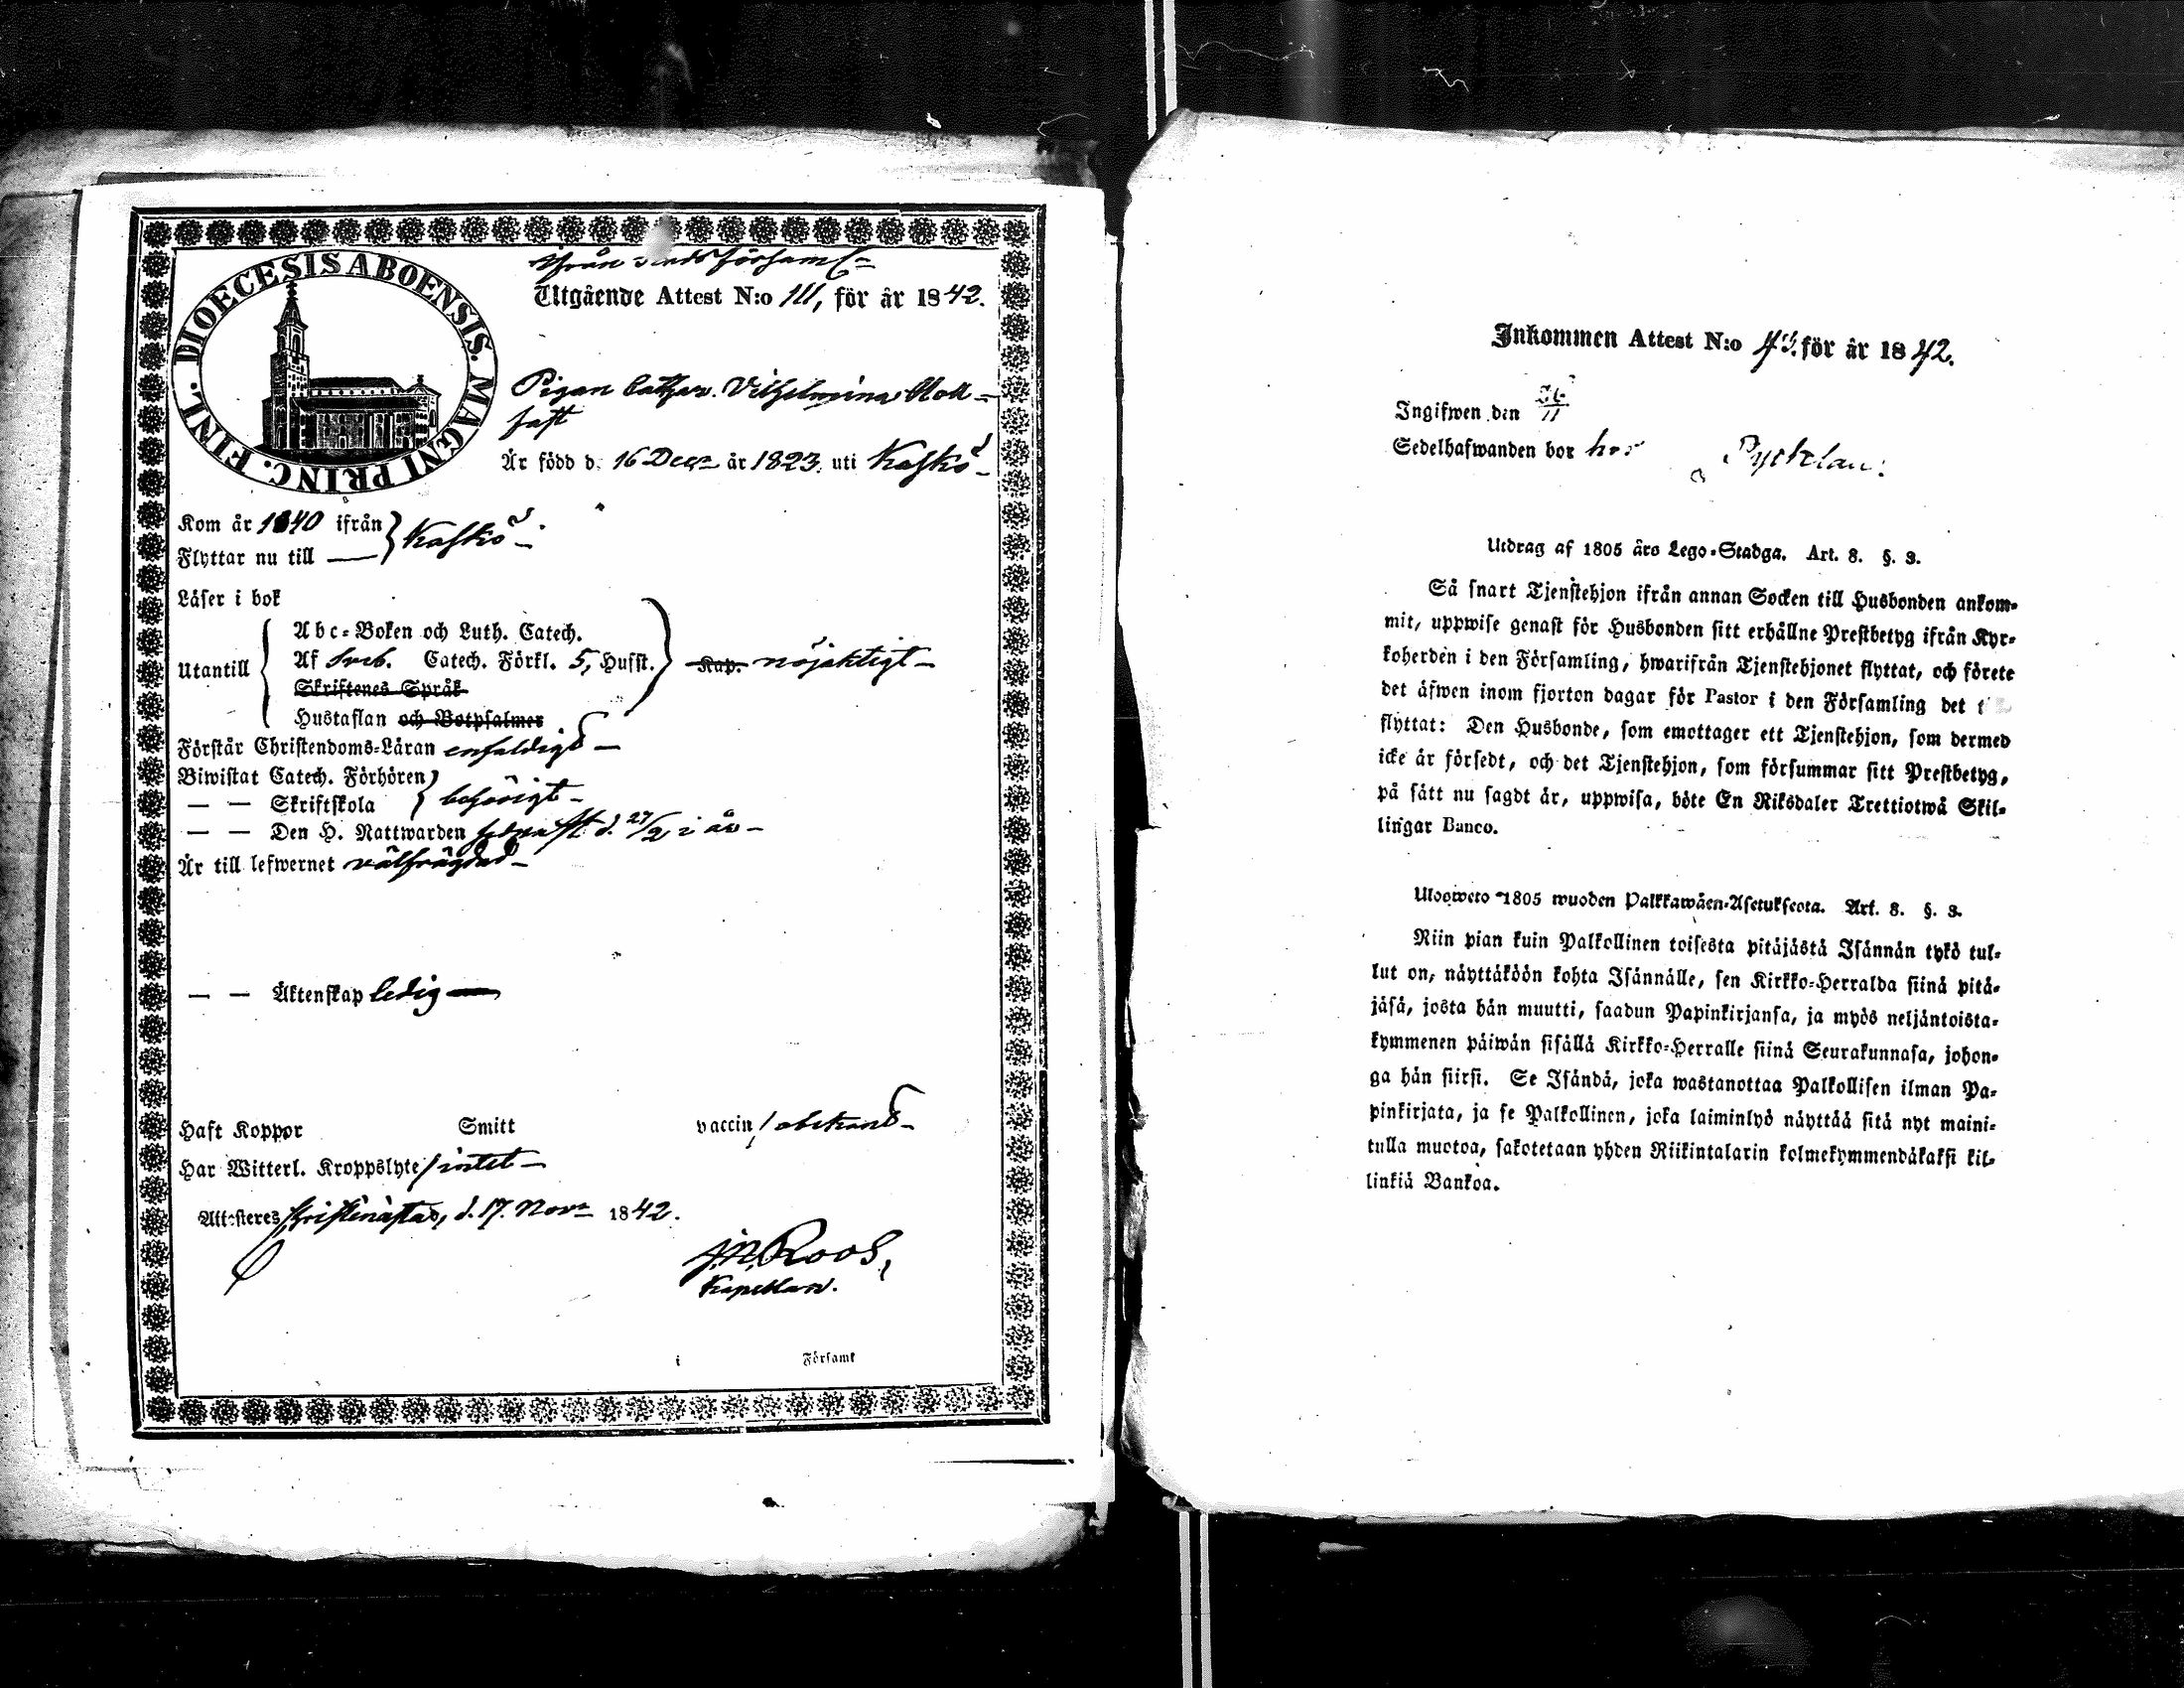 DIOECESIS ABOENSIS. MAGNI PRINC. FINL.
ifrån Församl:
Utgående Attest N:o 111, för år 1842.
Pigan Cathar. Vilhelmina
fast
Är född d. 16 Decr år 1823. uti Kaskö
Kom år 1840 ifrån } Kaskö
Flyttar nu till —
Läser i bok
Utantill
Abc-Boken och Luth. Catech.
Af Sveb. Catech. Förkl. 5, Husst. Kap. nöjaktigt
Skriftenes Språk
Hustaflan och Botpsalmer
Förstår Christendoms-Läran enfaldigt
Biwistat Catech. Förhören
— — Skriftskola } behörigt
— — Den H. Nattwarden d. 27/2 i år
Är till lefwernet välfrägdad
— — Äktenskap ledig
Haft Koppor Smitt vaccin / obekant
Har Witterl. Kroppslyte / intet
Attesteres Kristinestad, d. 17. Novr 1842.
J.N. Roos,
Kapellan.
i Församl
Inkommen Attest N:o 43. för år 1842.
Ingifwen den
Sedelhafwanden bor hos
Utdrag af 1805 års Lego-Stadga. Art. 8. §. 3.
Så snart Tjenstehjon ifrån annan Socken till Husbonden ankom-
mit, uppwise genast för Husbonden sitt erhållne Prestbetyg ifrån Kyr-
koherden i den Församling, hwarifrån Tjenstehjonet flyttat, och förete
det äfwen inom fjorton dagar för Pastor i den Församling det
flyttat: Den Husbonde, som emottager ett Tjenstehjon, som dermed
icke är försedt, och det Tjenstehjon, som försummar sitt Prestbetyg,
på sätt nu sagdt är, uppwisa, böte En Riksdaler Trettiotwå Skil-
lingar Banco.
Ulosweto 1805 wuoden Palkkawäen-Asetuksesta. Art. 8. §. 3.
Niin pian kuin Palkollinen toisesta pitäjästä Isännän tykö tul-
lut on, näyttäköön kohta Isännälle, sen Kirkko-Herralda siinä pitä-
jäsä, josta hän muutti, saadun Papinkirjansa, ja myös neljäntoista-
kymmenen päiwän sisällä Kirkko-Herralle siinä Seurakunnasa, johon-
ga hän siirsi. Se Isändä, joka wastanottaa Palkollisen ilman Pa-
pinkirjata, ja se Palkollinen, joka laiminlyö näyttää sitä nyt maini-
tulla muotoa, sakotetaan yhden Riikintalarin kolmekymmendäkaksi kil-
linkiä Bankoa.